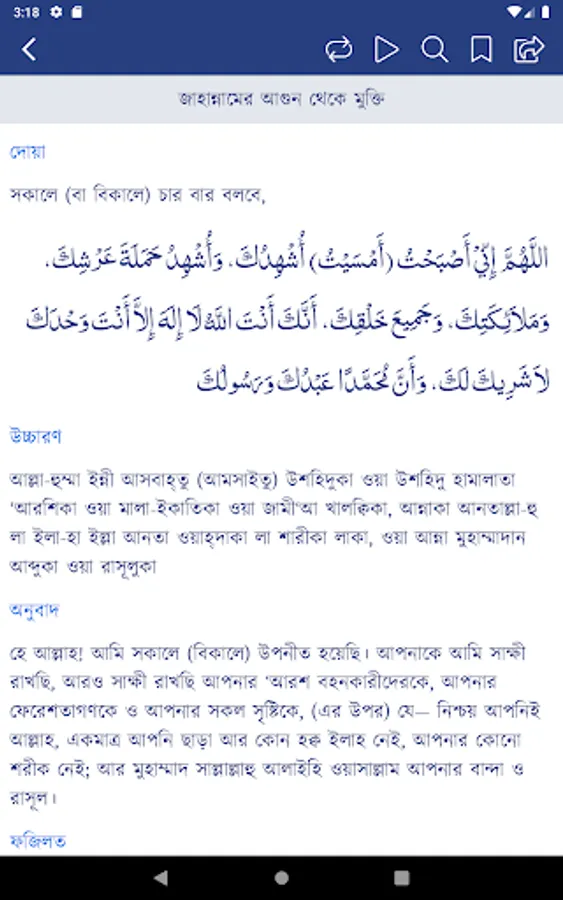 3:18
জাহান্নামের আগুন থেকে মুক্তি
দোয়া
সকালে (বা বিকালে) চার বার বলবে,
اللَّهُمَّ إِنِّي أَصْبَحْتُ (أَمْسَيْتُ) أُشْهِدُكَ، وَأُشْهِدُ حَمَلَةَ عَرْشِكَ،
وَمَلاَئِكَتِكَ، وَجَمِيعَ خَلْقِكَ، أَنَّكَ أَنْتَ اللَّهُ لَا إِلَهَ إِلاَّ أَنْتَ وَحْدَكَ
لاَ شَرِيكَ لَكَ، وَأَنَّ مُحَمَّدًا عَبْدُكَ وَرَسُولُكَ
উচ্চারণ
আল্লা-হুম্মা ইন্নী আসবাহ্‌তু (আমসাইতু) উশহিদুকা ওয়া উশহিদু হামালাতা
‘আরশিকা ওয়া মালা-ইকাতিকা ওয়া জামী‘আ খালক্বিকা, আন্নাকা আনতাল্লা-হু
লা ইলা-হা ইল্লা আনতা ওয়াহ্‌দাকা লা শারীকা লাকা, ওয়া আন্না মুহাম্মাদান
আব্দুকা ওয়া রাসূলুকা
অনুবাদ
হে আল্লাহ! আমি সকালে (বিকালে) উপনীত হয়েছি। আপনাকে আমি সাক্ষী
রাখছি, আরও সাক্ষী রাখছি আপনার ‘আরশ বহনকারীদেরকে, আপনার
ফেরেশতাগণকে ও আপনার সকল সৃষ্টিকে, (এর উপর) যে— নিশ্চয় আপনিই
আল্লাহ, একমাত্র আপনি ছাড়া আর কোন হক্ব ইলাহ নেই, আপনার কোনো
শরীক নেই; আর মুহাম্মাদ সাল্লাল্লাহু আলাইহি ওয়াসাল্লাম আপনার বান্দা ও
রাসূল।
ফজিলত